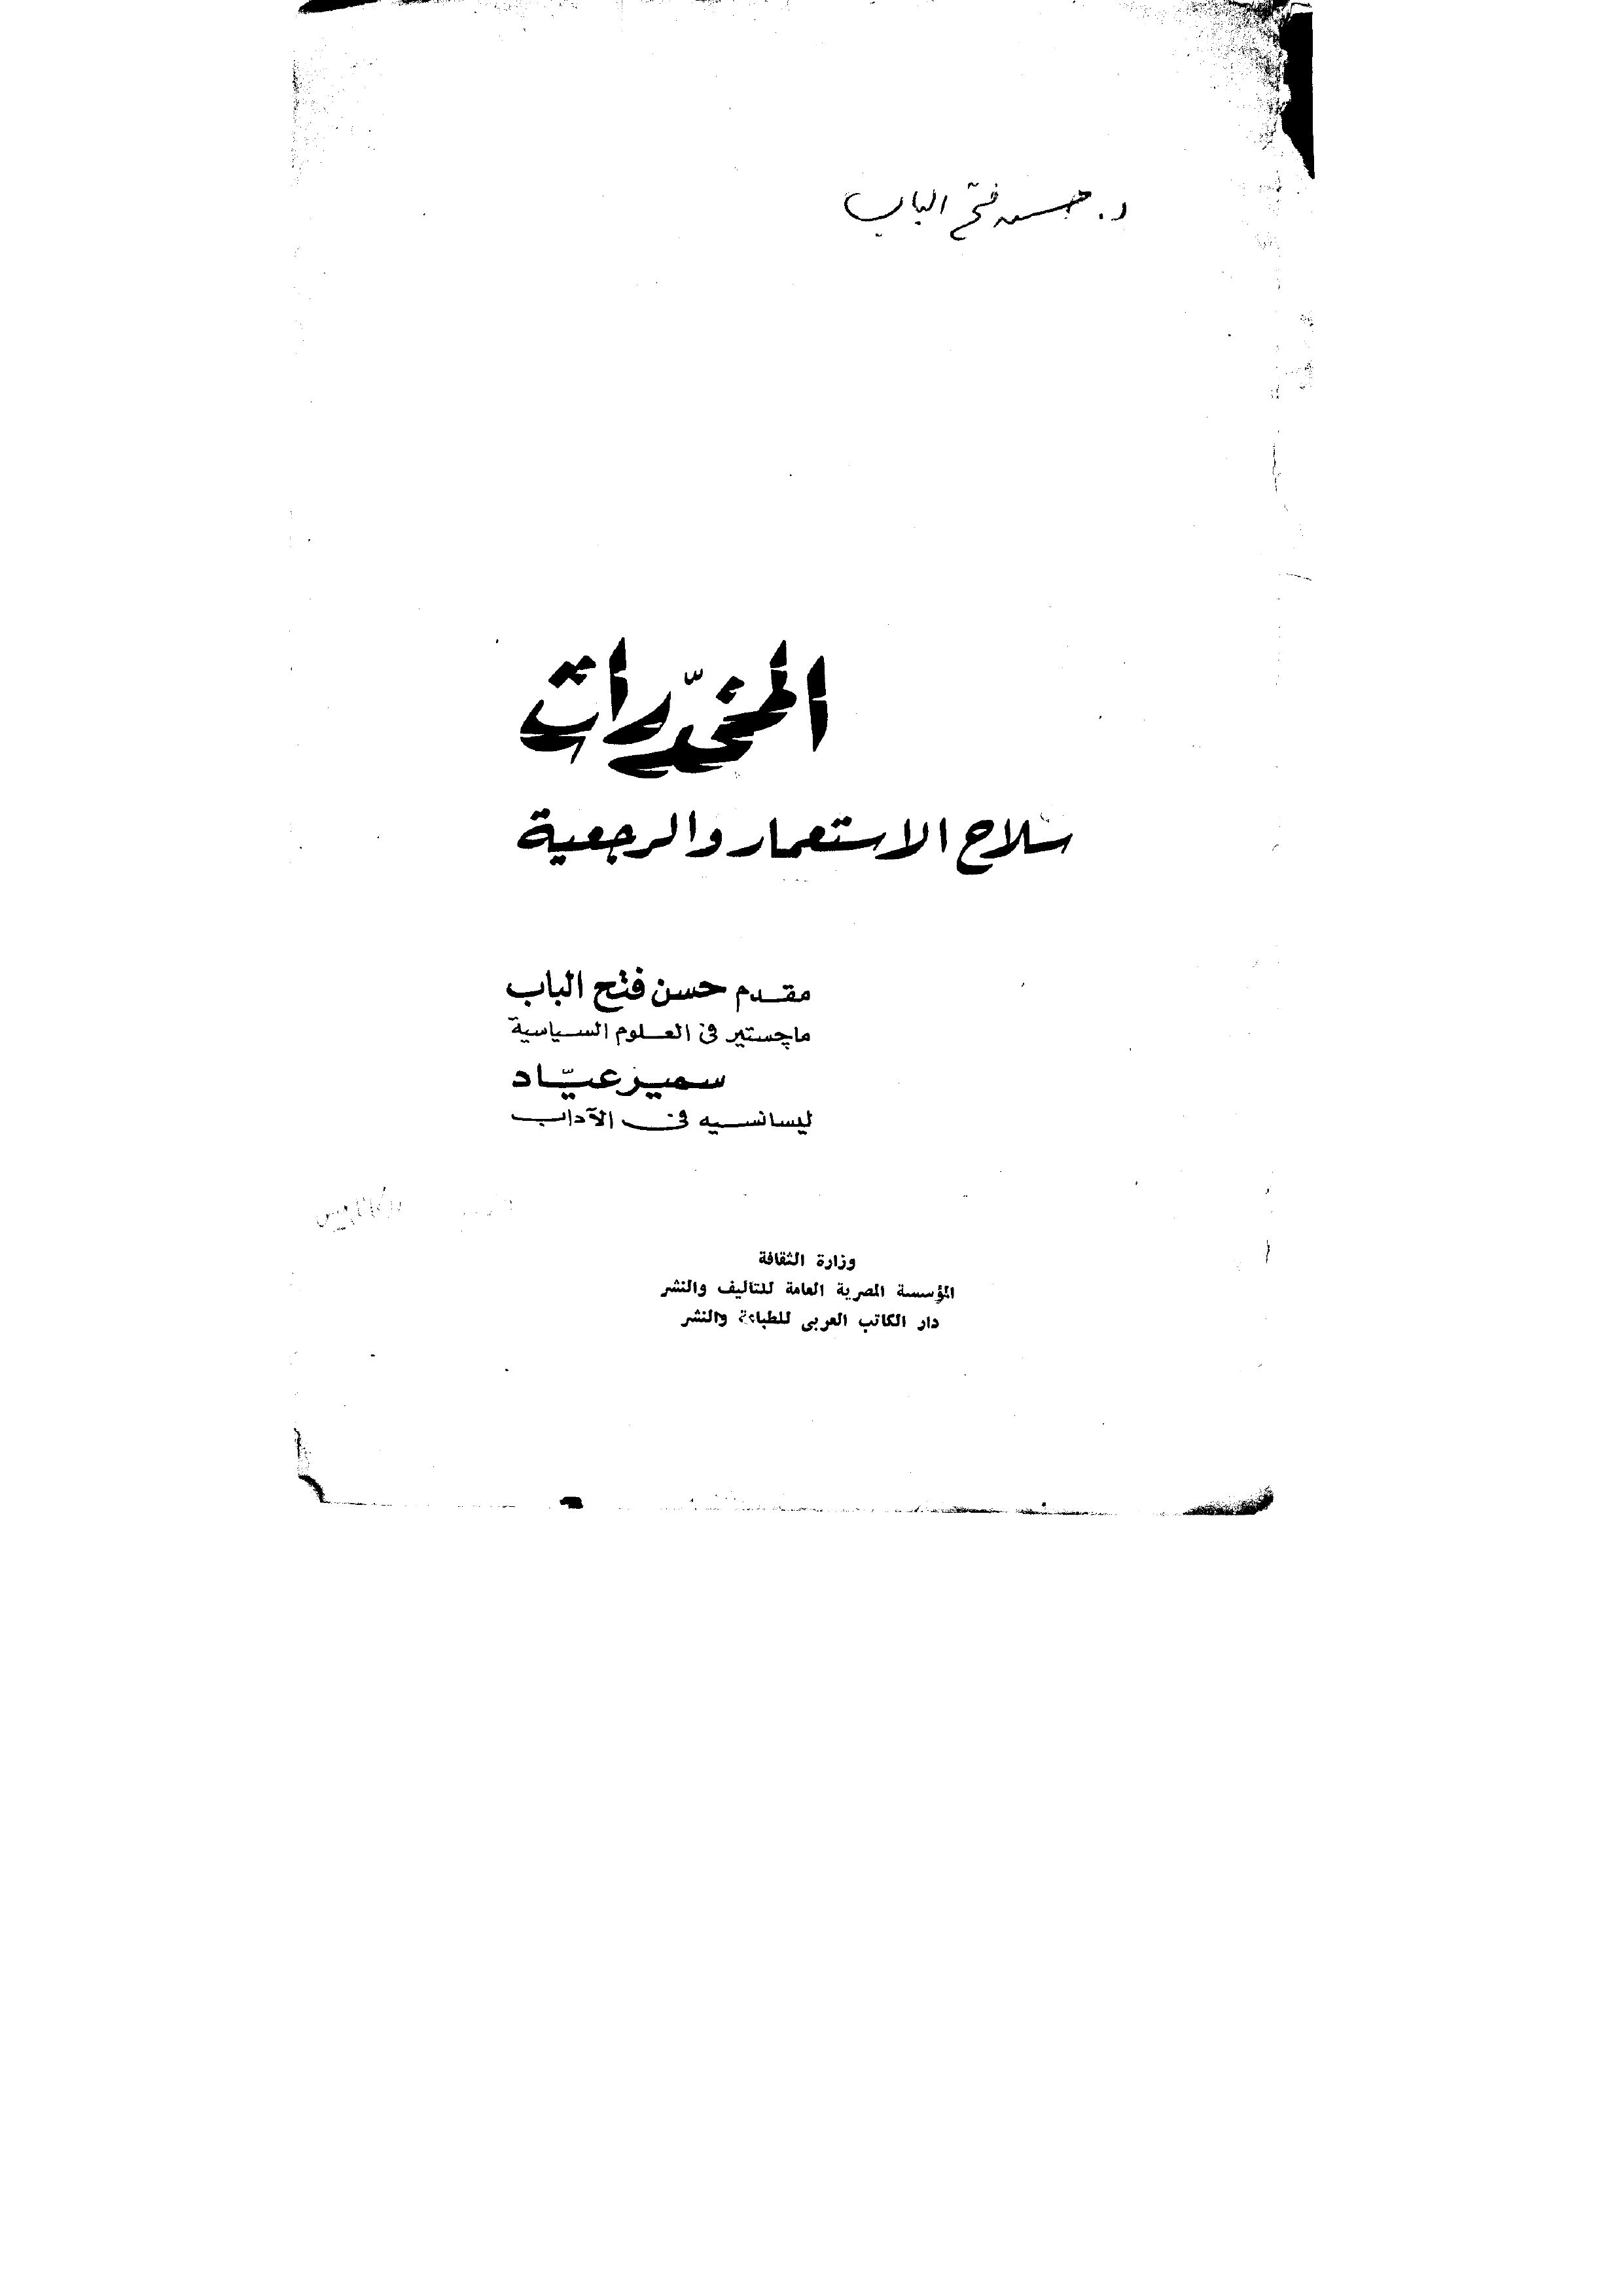 د. حسن فتح الباب
المخدّرات
سلاح الاستعمار والرجعية
مقدم حسن فتح الباب
ماچستير فى العلوم السياسية
سمير عيّاد
ليسانسيه فى الآداب
وزارة الثقافة
المؤسسة المصرية العامة للتأليف والنشر
دار الكاتب العربى للطباعة والنشر